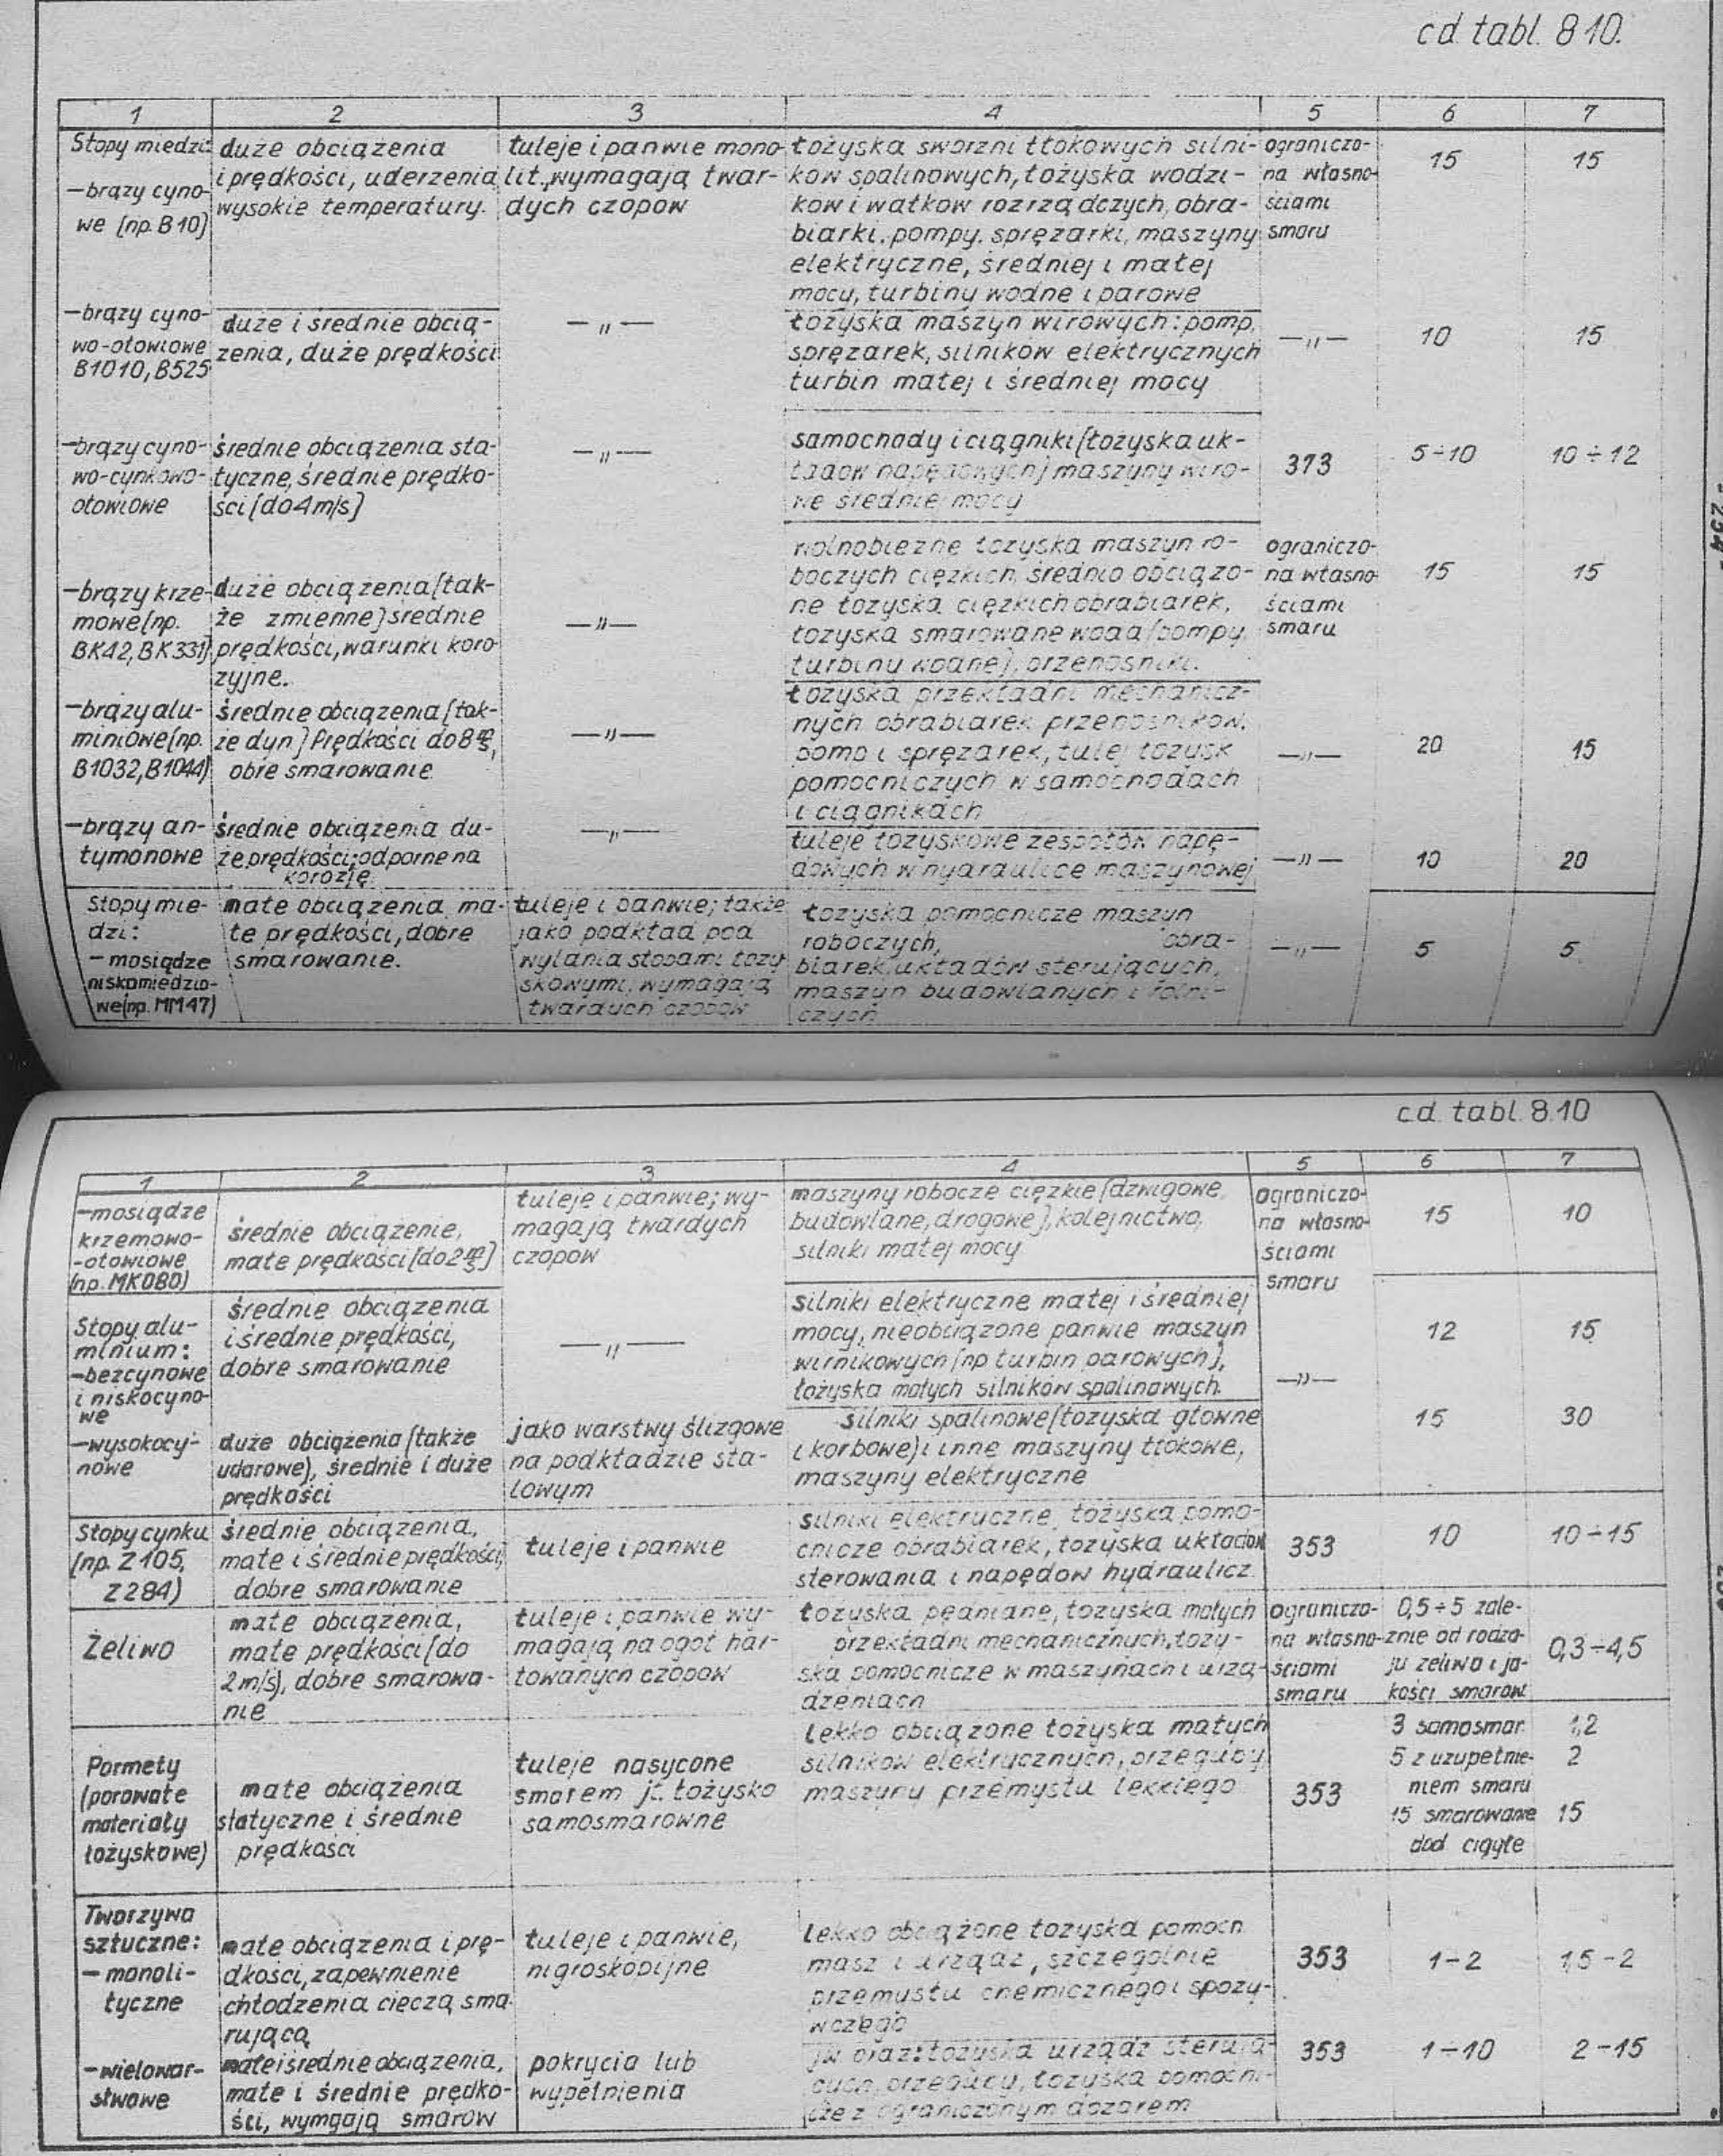 cd. tabl. 8.10.
1 2 3 4 5 6 7
Stopy miedzi:
-brązy cyno-
we [np. B10]
duże obciążenia
i prędkości, uderzenia,
wysokie temperatury.
tuleje i panwie mono-
lit., wymagają twar-
dych czopów
łożyska sworzni tłokowych silni-
ków spalinowych, łożyska wodzi-
ków i wałków rozrządczych, obra-
biarki, pompy, sprężarki, maszyny
elektryczne, średniej i małej
mocy, turbiny wodne i parowe
ograniczo-
na własno-
ściami
smaru
15
15
-brązy cyno-
wo-ołowiowe
B1010, B525
duże i średnie obcią-
żenia, duże prędkości
—„—
łożyska maszyn wirowych: pomp,
sprężarek, silników elektrycznych
turbin małej i średniej mocy
—„—
10
15
-brązy cyno-
wo-cynkowo-
ołowiowe
średnie obciążenia sta-
tyczne, średnie prędko-
ści [do 4 m/s]
—„—
samochody i ciągniki [łożyska uk-
ładów napędowych] maszyny wiro-
we średniej mocy
373
5÷10
10÷12
-brązy krze-
mowe [np.
BK42, BK331]
duże obciążenia [tak-
że zmienne] średnie
prędkości, warunki koro-
zyjne.
—„—
wolnobieżne łożyska maszyn ro-
boczych ciężkich, średnio obciążo-
ne łożyska ciężkich obrabiarek,
łożyska smarowane wodą [pompy,
turbiny wodne], przenośniki.
ograniczo-
na własno-
ściami
smaru
15
15
-brązy alu-
miniowe [np.
B1032, B1044]
średnie obciążenia [tak-
że dyn.] Prędkości do 8 m/s,
obre smarowanie
—„—
łożyska przekładni mechanicz-
nych obrabiarek przenośników,
pomp i sprężarek, tulej łożysk
pomocniczych w samochodach
i ciągnikach
—„—
20
15
-brązy an-
tymonowe
średnie obciążenia du-
że prędkości; odporne na
korozję.
—„—
tuleje łożyskowe zespołów napę-
dowych w hydraulice maszynowej
—„—
10
20
Stopy mie-
dzi:
- mosiądze
niskomiedzio-
we [np. MM47)
małe obciążenia, ma-
łe prędkości, dobre
smarowanie.
tuleje i panwie; także
jako podkład pod
wylania stopami łoży-
skowymi, wymagają
twardych czopów
łożyska pomocnicze maszyn
roboczych, obra-
biarek, układów sterujących,
maszyn budowlanych i rolni-
czych
—„—
5
5
cd. tabl. 8.10
1 2 3 4 5 6 7
-mosiądze
krzemowo-
-ołowiowe
(np. MK080)
średnie obciążenie,
małe prędkości [do 2 m/s]
tuleje i panwie; wy-
magają twardych
czopów
maszyny robocze ciężkie [dźwigowe,
budowlane, drogowe], kolejnictwo,
silniki małej mocy
ograniczo-
na własno-
ściami
smaru
15
10
Stopy alu-
minium:
-bezcynowe
i niskocyno-
we
średnie obciążenia
i średnie prędkości,
dobre smarowanie
—„—
silniki elektryczne małej i średniej
mocy, nieobciążone panwie maszyn
wirnikowych [np turbin parowych],
łożyska małych silników spalinowych.
—„—
12
15
-wysokocy-
nowe
duże obciążenia [także
udarowe), średnie i duże
prędkości
jako warstwy ślizgowe
na podkładzie sta-
lowym
silniki spalinowe [łożyska główne
i korbowe) i inne maszyny tłokowe,
maszyny elektryczne
15
30
Stopy cynku
[np. Z105,
Z284)
średnie obciążenia,
małe i średnie prędkości,
dobre smarowanie
tuleje i panwie
silniki elektryczne, łożyska pomo-
cnicze obrabiarek, łożyska układów
sterowania i napędów hydraulicz.
353
10
10÷15
Żeliwo
małe obciążenia,
małe prędkości [do
2 m/s), dobre smarowa-
nie
tuleje i panwie wy-
magają na ogół har-
towanych czopów
łożyska pędniane, łożyska małych
przekładni mechanicznych, łoży-
ska pomocnicze w maszynach i urzą-
dzeniach
ograniczo-
na własno-
ściami
smaru
0,5÷5 zale-
żnie od rodza-
ju żeliwa i ja-
kości smarow.
0,3÷4,5
Pormety
(porowate
materiały
łożyskowe)
małe obciążenia
statyczne i średnie
prędkości
tuleje nasycone
smarem jt. łożysko
samosmarowne
lekko obciążone łożyska małych
silników elektrycznych, przeguby,
maszyny przemysłu lekkiego
353
3 samosmar.
5 z uzupełnie-
niem smaru
15 smarowanie
dod ciągłe
1,2
2
15
Tworzywa
sztuczne:
- monoli-
tyczne
małe obciążenia i prę-
dkości, zapewnienie
chłodzenia cieczą sma-
rującą
tuleje i panwie,
higroskopijne
lekko obciążone łożyska pomocn.
masz. i urządz, szczególnie
przemysłu chemicznego i spoży-
wczego
353
1-2
1,5-2
-wielowar-
stwowe
małe i średnie obciążenia,
małe i średnie prędko-
ści, wymgają smarow
pokrycia lub
wypełnienia
jw oraz: łożyska urządz sterują-
cych, przeguby, łożyska pomocni-
cze z ograniczonym dozorem
353
1÷10
2-15